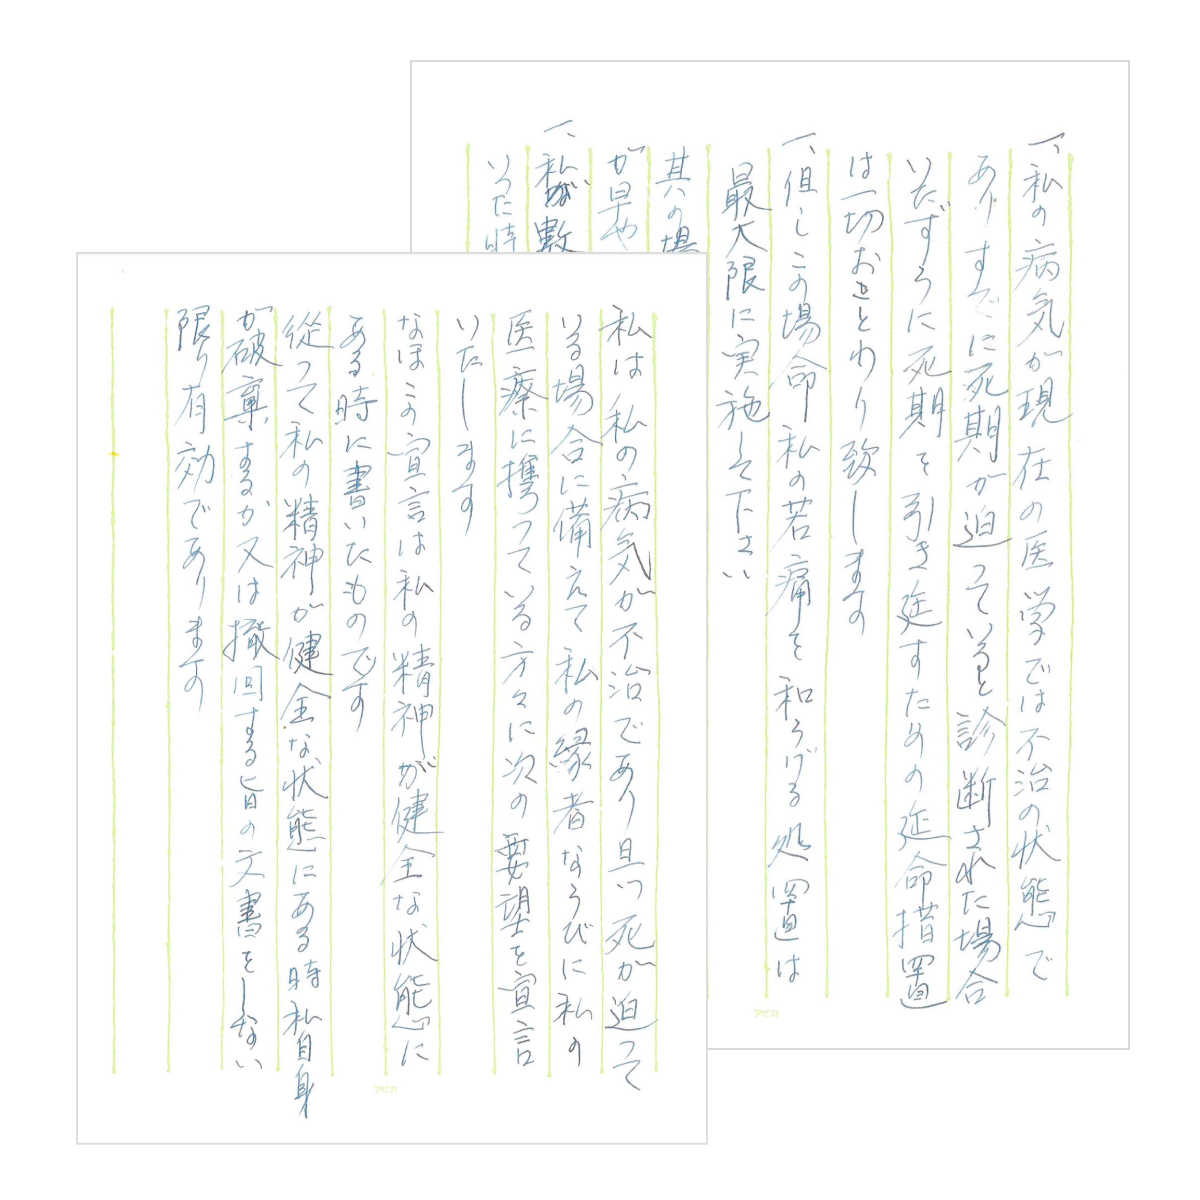 私は私の病気が不治であり且つ死が迫って
いる場合に備えて私の縁者ならびに私の
医療に携っている方々に次の要望を宣言
いたします
なほこの宣言は私の精神が健全な状態に
ある時に書いたものです
従って私の精神が健全な状態にある時私自身
が破棄するか又は撤回する旨の文書をしない
限り有効であります
アピカ
一、私の病気が現在の医学では不治の状態で
ありすでに死期が迫っていると診断された場合
いたずらに死期を引き延すための延命措置
は一切おことわり致します
一、但しこの場命私の苦痛を和らげる処置は
最大限に実施して下さい
其の場
が早や
一、私が数
いった時
アピカ